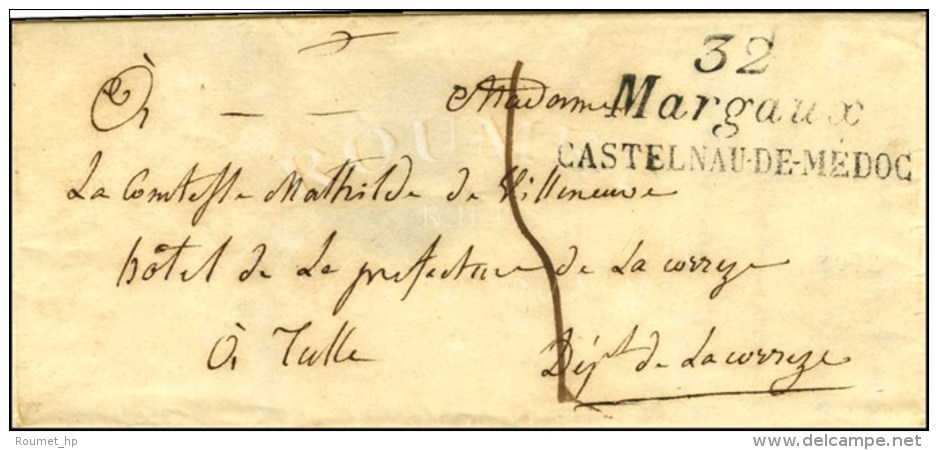 32
Margaux
CASTELNAU-DE-MÉDOC
À — — Madame
La Comtesse Mathilde de Villeneuve
hôtel de La prefecture de La correze
à Tulle
Dépt de La correze
ROUMET
Roumet_hp
delcampe.net